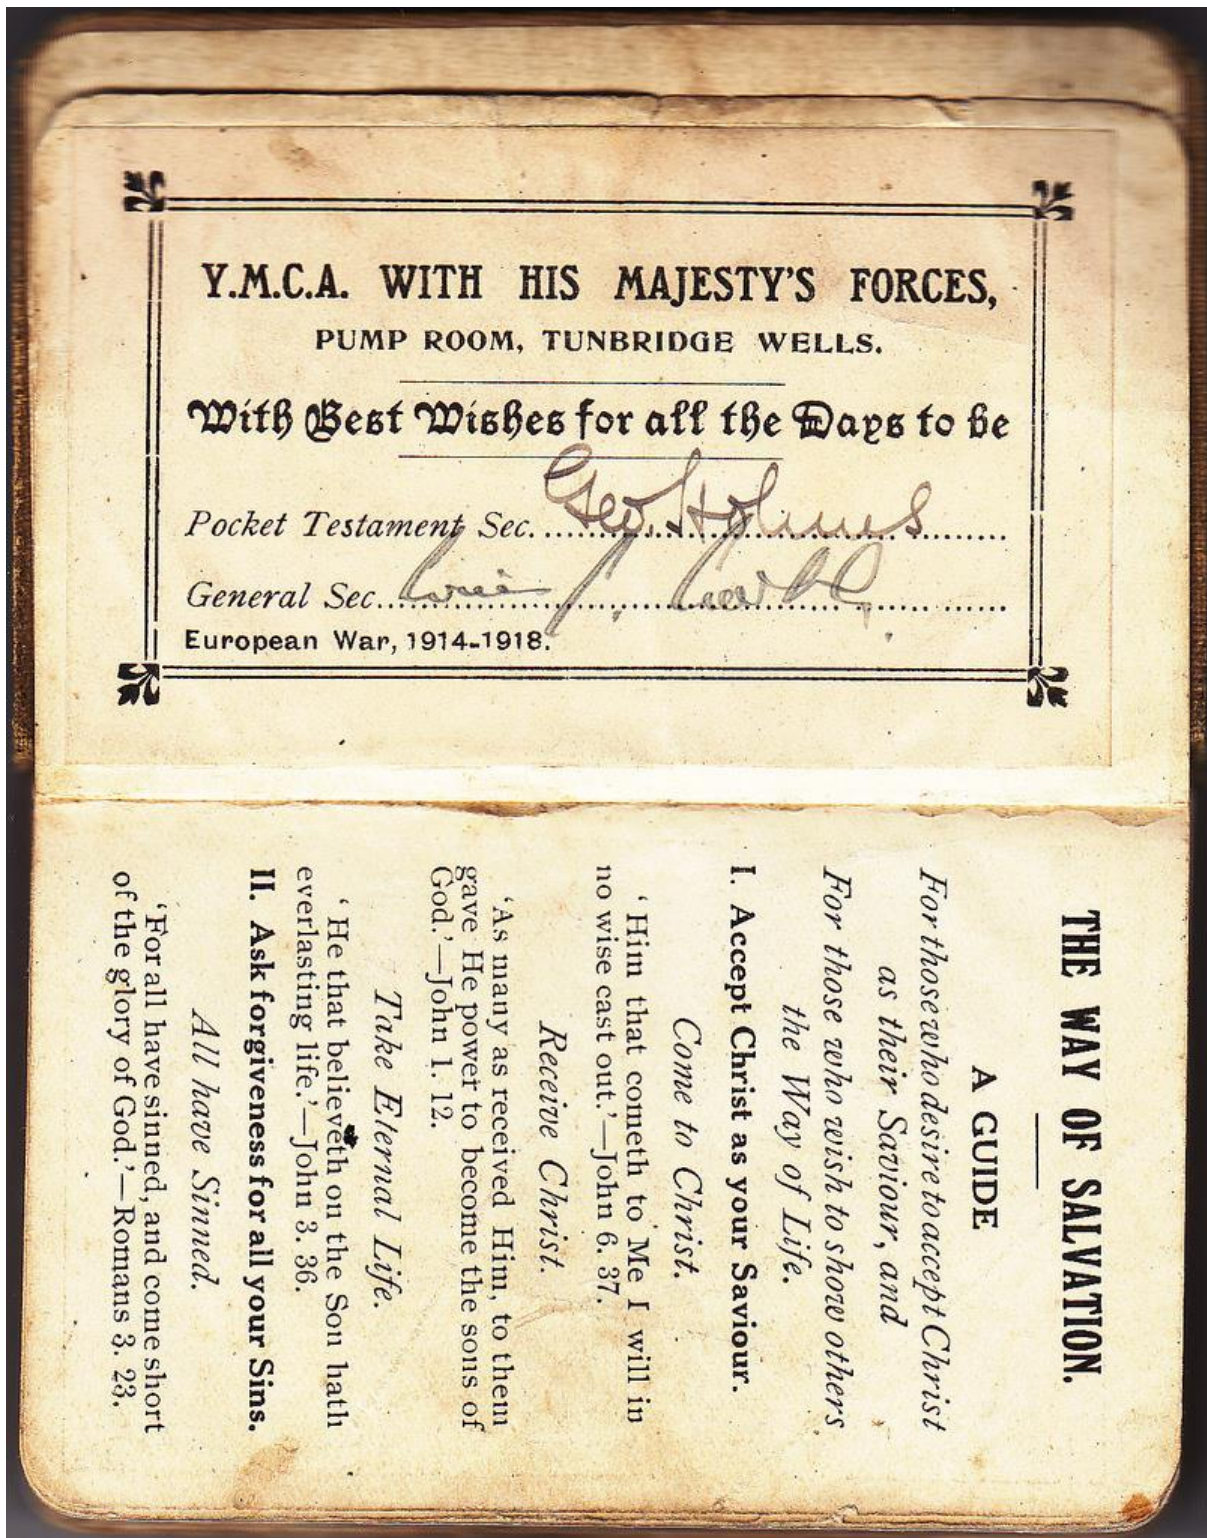 Y.M.C.A. WITH HIS MAJESTY'S FORCES,
PUMP ROOM, TUNBRIDGE WELLS.
With Best Wishes for all the Days to be
Pocket Testament Sec. Geo. Holmes
General Sec.
European War, 1914-1918.
THE WAY OF SALVATION.
A GUIDE
For those who desire to accept Christ
as their Saviour, and
For those who wish to show others
the Way of Life.
I. Accept Christ as your Saviour.
Come to Christ.
'Him that cometh to Me I will in
no wise cast out.'—John 6. 37.
Receive Christ.
'As many as received Him, to them
gave He power to become the sons of
God.'—John 1. 12.
Take Eternal Life.
'He that believeth on the Son hath
everlasting life.'—John 3. 36.
II. Ask forgiveness for all your Sins.
All have Sinned.
'For all have sinned, and come short
of the glory of God.'—Romans 3. 23.